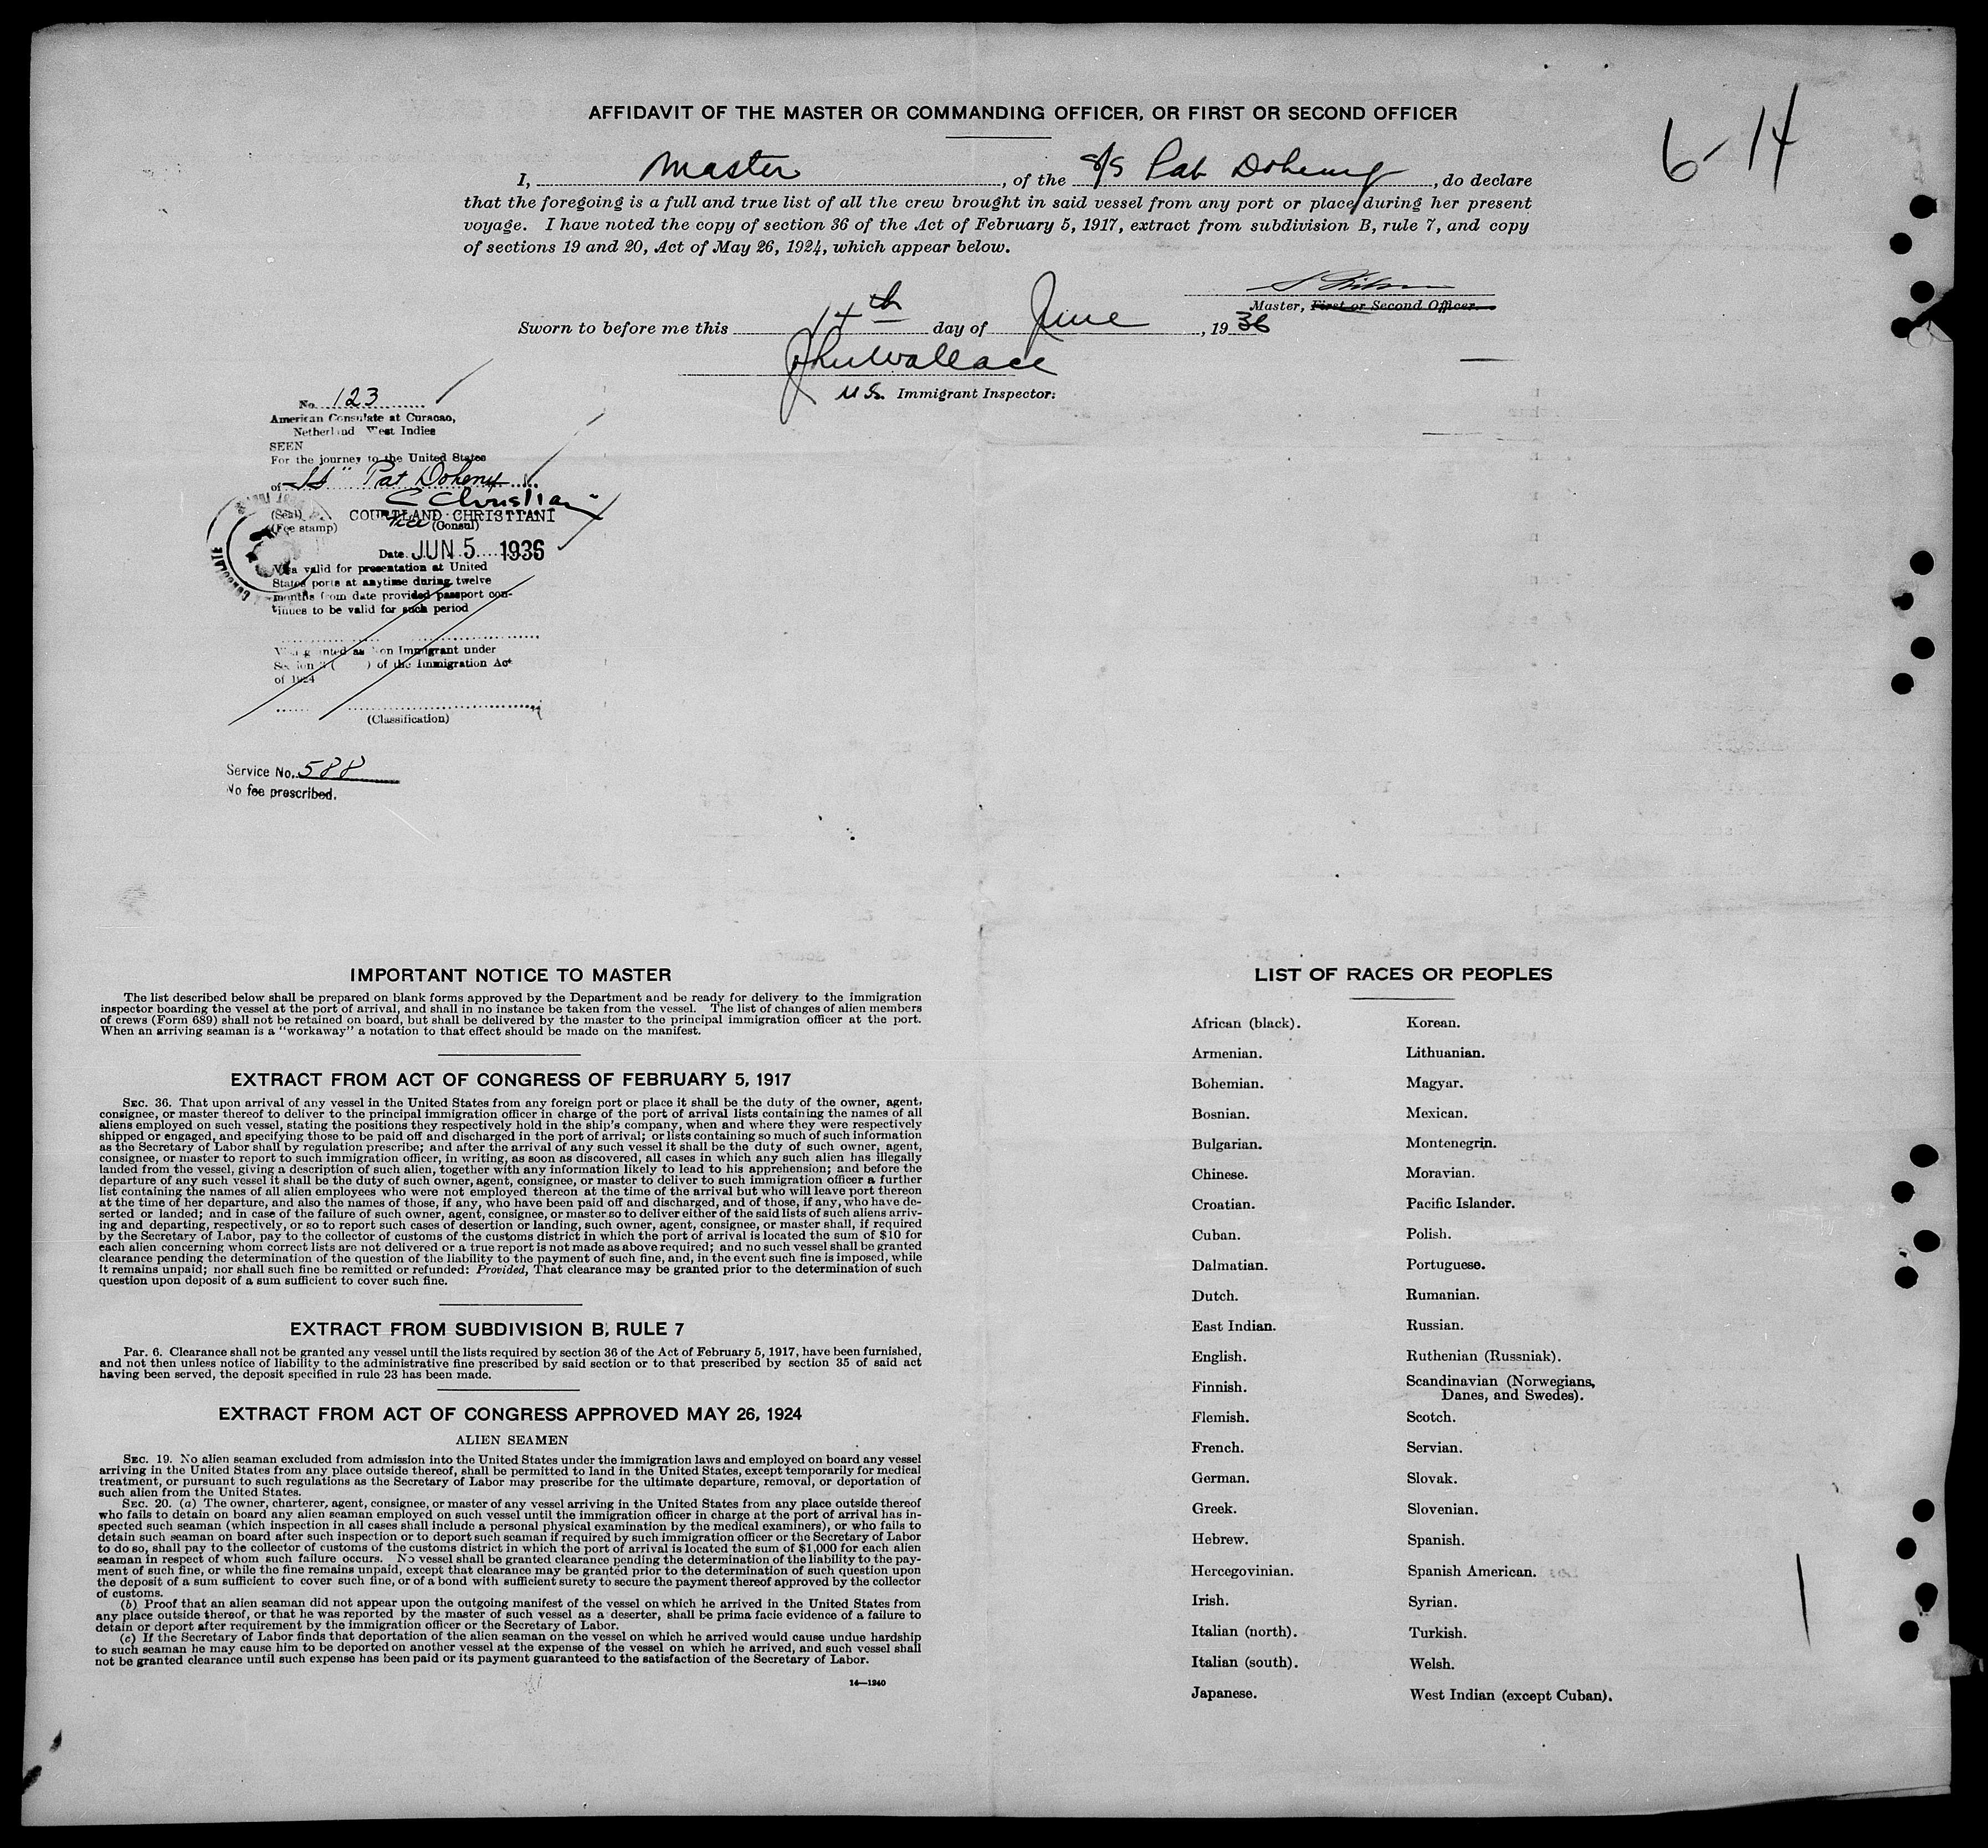 AFFIDAVIT OF THE MASTER OR COMMANDING OFFICER, OR FIRST OR SECOND OFFICER
6-14
I, Master, of the S/S Pat Doheny, do declare
that the foregoing is a full and true list of all the crew brought in said vessel from any port or place during her present
voyage. I have noted the copy of section 36 of the Act of February 5, 1917, extract from subdivision B, rule 7, and copy
of sections 19 and 20, Act of May 26, 1924, which appear below.
Master, First or Second Officer.
Sworn to before me this 14th day of June, 1936
Wallace
U.S. Immigrant Inspector.
No. 123
American Consulate at Curacao,
Netherland West Indies
SEEN
For the journey to the United States
of SS "Pat Doheny
C Christiani
(Seal) COURTLAND CHRISTIANI
(Fee stamp) Vice (Consul)
Date JUN 5 1936
Visa valid for presentation at United
States ports at anytime during twelve
months from date provided passport con-
tinues to be valid for such period
Visa granted as Non Immigrant under
Section 3 ( ) of the Immigration Act
of 1924
(Classification)
CONSULATE
Service No. 588
No fee prescribed.
IMPORTANT NOTICE TO MASTER
The list described below shall be prepared on blank forms approved by the Department and be ready for delivery to the immigration
inspector boarding the vessel at the port of arrival, and shall in no instance be taken from the vessel. The list of changes of alien members
of crews (Form 689) shall not be retained on board, but shall be delivered by the master to the principal immigration officer at the port.
When an arriving seaman is a "workaway" a notation to that effect should be made on the manifest.
EXTRACT FROM ACT OF CONGRESS OF FEBRUARY 5, 1917
SEC. 36. That upon arrival of any vessel in the United States from any foreign port or place it shall be the duty of the owner, agent,
consignee, or master thereof to deliver to the principal immigration officer in charge of the port of arrival lists containing the names of all
aliens employed on such vessel, stating the positions they respectively hold in the ship's company, when and where they were respectively
shipped or engaged, and specifying those to be paid off and discharged in the port of arrival; or lists containing so much of such information
as the Secretary of Labor shall by regulation prescribe; and after the arrival of any such vessel it shall be the duty of such owner, agent,
consignee, or master to report to such immigration officer, in writing, as soon as discovered, all cases in which any such alien has illegally
landed from the vessel, giving a description of such alien, together with any information likely to lead to his apprehension; and before the
departure of any such vessel it shall be the duty of such owner, agent, consignee, or master to deliver to such immigration officer a further
list containing the names of all alien employees who were not employed thereon at the time of the arrival but who will leave port thereon
at the time of her departure, and also the names of those, if any, who have been paid off and discharged, and of those, if any, who have de-
serted or landed; and in case of the failure of such owner, agent, consignee, or master so to deliver either of the said lists of such aliens arriv-
ing and departing, respectively, or so to report such cases of desertion or landing, such owner, agent, consignee, or master shall, if required
by the Secretary of Labor, pay to the collector of customs of the customs district in which the port of arrival is located the sum of $10 for
each alien concerning whom correct lists are not delivered or a true report is not made as above required; and no such vessel shall be granted
clearance pending the determination of the question of the liability to the payment of such fine, and, in the event such fine is imposed, while
it remains unpaid; nor shall such fine be remitted or refunded: Provided, That clearance may be granted prior to the determination of such
question upon deposit of a sum sufficient to cover such fine.
EXTRACT FROM SUBDIVISION B, RULE 7
Par. 6. Clearance shall not be granted any vessel until the lists required by section 36 of the Act of February 5, 1917, have been furnished,
and not then unless notice of liability to the administrative fine prescribed by said section or to that prescribed by section 35 of said act
having been served, the deposit specified in rule 23 has been made.
EXTRACT FROM ACT OF CONGRESS APPROVED MAY 26, 1924
ALIEN SEAMEN
SEC. 19. No alien seaman excluded from admission into the United States under the immigration laws and employed on board any vessel
arriving in the United States from any place outside thereof, shall be permitted to land in the United States, except temporarily for medical
treatment, or pursuant to such regulations as the Secretary of Labor may prescribe for the ultimate departure, removal, or deportation of
such alien from the United States.
SEC. 20. (a) The owner, charterer, agent, consignee, or master of any vessel arriving in the United States from any place outside thereof
who fails to detain on board any alien seaman employed on such vessel until the immigration officer in charge at the port of arrival has in-
spected such seaman (which inspection in all cases shall include a personal physical examination by the medical examiners), or who fails to
detain such seaman on board after such inspection or to deport such seaman if required by such immigration officer or the Secretary of Labor
to do so, shall pay to the collector of customs of the customs district in which the port of arrival is located the sum of $1,000 for each alien
seaman in respect of whom such failure occurs. No vessel shall be granted clearance pending the determination of the liability to the pay-
ment of such fine, or while the fine remains unpaid, except that clearance may be granted prior to the determination of such question upon
the deposit of a sum sufficient to cover such fine, or of a bond with sufficient surety to secure the payment thereof approved by the collector
of customs.
(b) Proof that an alien seaman did not appear upon the outgoing manifest of the vessel on which he arrived in the United States from
any place outside thereof, or that he was reported by the master of such vessel as a deserter, shall be prima facie evidence of a failure to
detain or deport after requirement by the immigration officer or the Secretary of Labor.
(c) If the Secretary of Labor finds that deportation of the alien seaman on the vessel on which he arrived would cause undue hardship
to such seaman he may cause him to be deported on another vessel at the expense of the vessel on which he arrived, and such vessel shall
not be granted clearance until such expense has been paid or its payment guaranteed to the satisfaction of the Secretary of Labor.
14—1240
LIST OF RACES OR PEOPLES
African (black). Korean.
Armenian. Lithuanian.
Bohemian. Magyar.
Bosnian. Mexican.
Bulgarian. Montenegrin.
Chinese. Moravian.
Croatian. Pacific Islander.
Cuban. Polish.
Dalmatian. Portuguese.
Dutch. Rumanian.
East Indian. Russian.
English. Ruthenian (Russniak).
Finnish. Scandinavian (Norwegians,
Danes, and Swedes).
Flemish. Scotch.
French. Servian.
German. Slovak.
Greek. Slovenian.
Hebrew. Spanish.
Hercegovinian. Spanish American.
Irish. Syrian.
Italian (north). Turkish.
Italian (south). Welsh.
Japanese. West Indian (except Cuban).